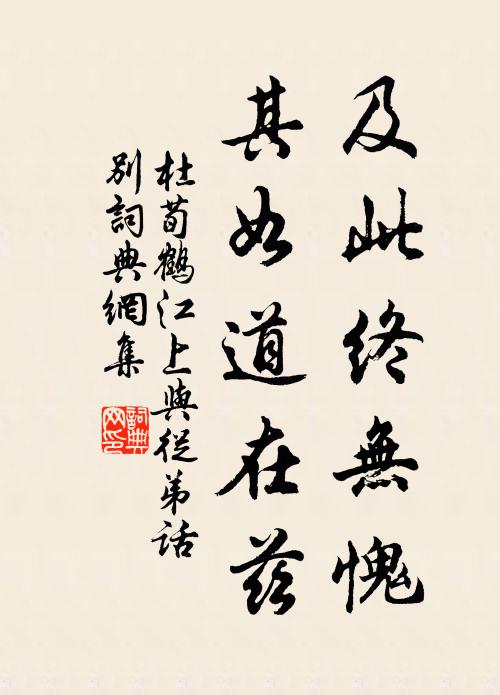 及此終無愧
其如道在茲
杜荀鶴江上與從弟話
別詞典網集
詞典
网印